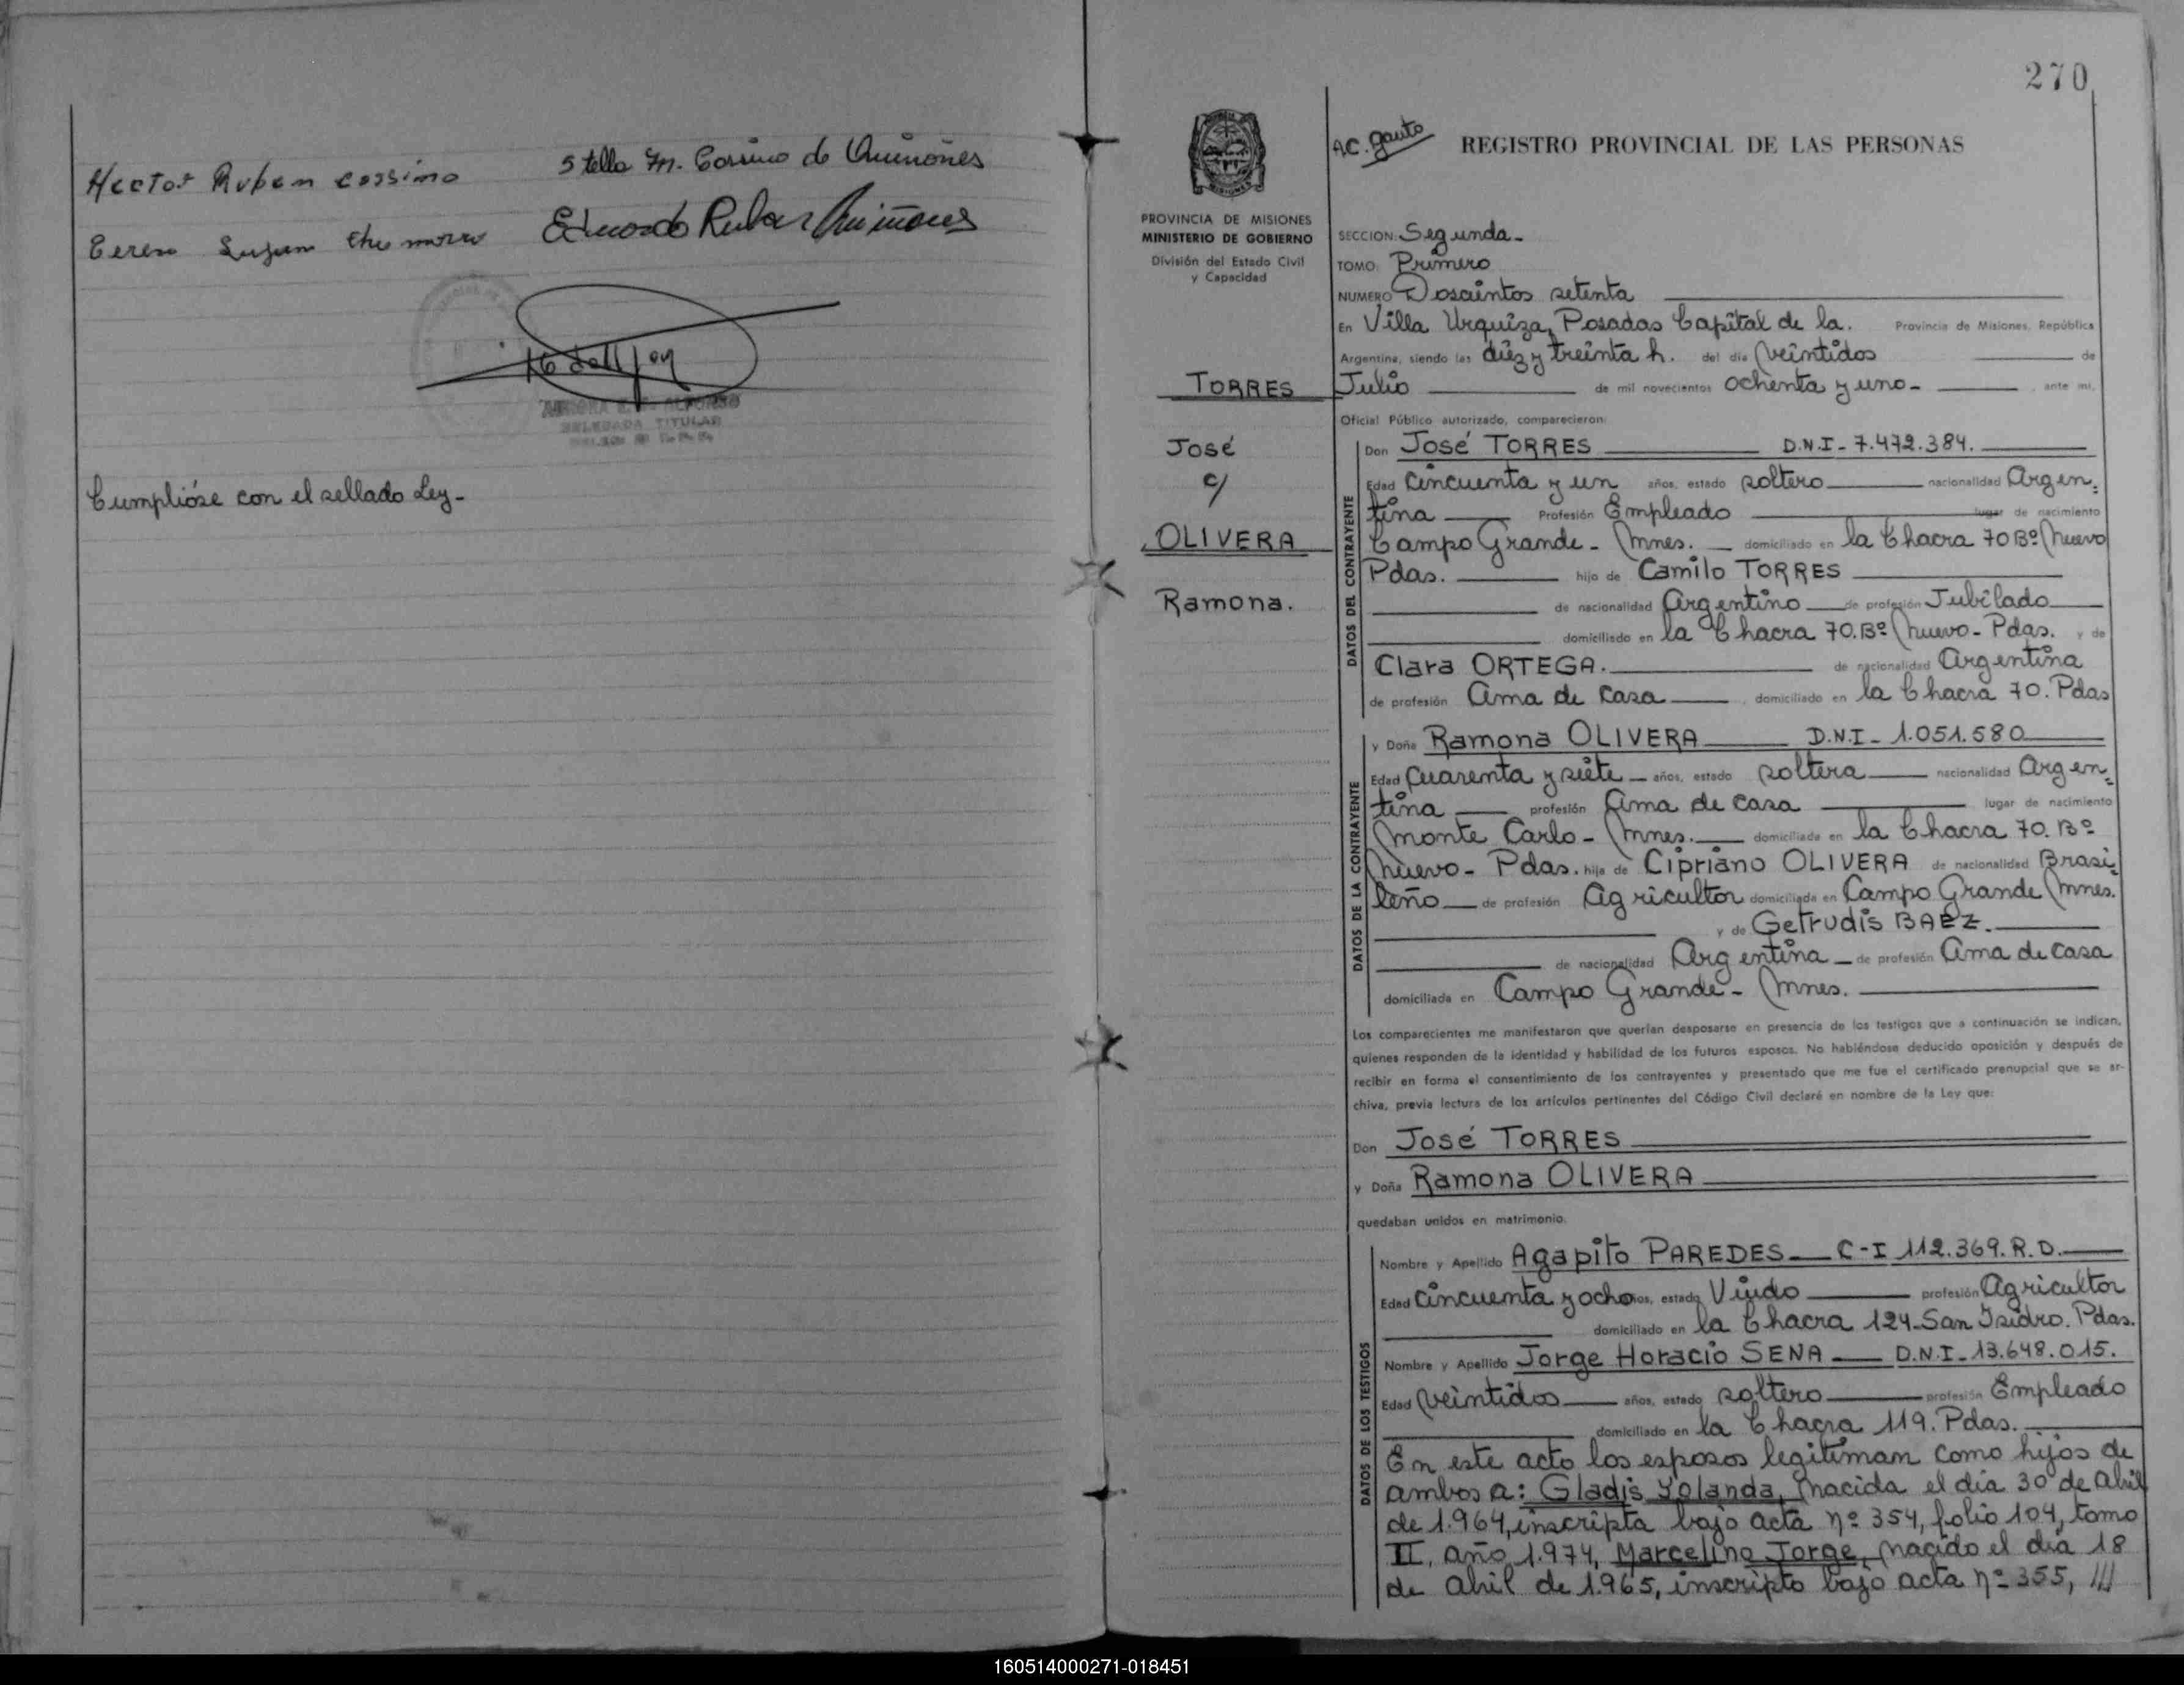 Hector Ruben Cossimo
Stella M. de Quiñones
Eduardo Ruben Quiñones
Susana
DELEGADA TITULAR
Cumplióse con el sellado Ley-
270
A.C. gauto
REGISTRO PROVINCIAL DE LAS PERSONAS
PROVINCIA DE MISIONES
MINISTERIO DE GOBIERNO
División del Estado Civil
y Capacidad
TORRES
José
c/
OLIVERA
Ramona.
SECCION: Segunda-
TOMO: Primero
NUMERO Doscientos setenta
En Villa Urquiza, Posadas Capital de la. Provincia de Misiones, República
Argentina, siendo las diez y treinta h. del día Veintidos de
Julio de mil novecientos ochenta y uno- , ante mi,
Oficial Público autorizado, comparecieron:
DATOS DEL CONTRAYENTE
Don José TORRES D.N.I- 7.472.384.
Edad Cincuenta y un años, estado soltero nacionalidad Argen=
tina Profesión Empleado lugar de nacimiento
Campo Grande- Mnes. domiciliado en la Chacra 70 Bº Nuevo
Pdas. hijo de Camilo TORRES
de nacionalidad Argentino de profesión Jubilado
domiciliado en la Chacra 70. Bº Nuevo- Pdas. y de
Clara ORTEGA. de nacionalidad Argentina
de profesión Ama de casa , domiciliado en la Chacra 70. Pdas
DATOS DE LA CONTRAYENTE
y Doña Ramona OLIVERA D.N.I- 1.051.580
Edad Cuarenta y siete años, estado soltera nacionalidad Argen=
tina profesión Ama de casa lugar de nacimiento
Monte Carlo- Mnes. domiciliada en la Chacra 70. Bº
Nuevo- Pdas. hija de Cipriano OLIVERA de nacionalidad Brasi=
leño de profesión Agricultor domiciliada en Campo Grande Mnes.
y de Getrudis BAEZ.
de nacionalidad Argentina de profesión Ama de casa
domiciliada en Campo Grande- Mnes.
Los comparecientes me manifestaron que querían desposarse en presencia de los testigos que a continuación se indican,
quienes responden de la identidad y habilidad de los futuros esposos. No habiéndose deducido oposición y después de
recibir en forma el consentimiento de los contrayentes y presentado que me fue el certificado prenupcial que se ar-
chiva, previa lectura de los artículos pertinentes del Código Civil declaré en nombre de la Ley que:
Don José TORRES
y Doña Ramona OLIVERA
quedaban unidos en matrimonio.
DATOS DE LOS TESTIGOS
Nombre y Apellido Agapito PAREDES C-I 112.369. R.D.
Edad Cincuenta y ocho años, estado Viudo profesión Agricultor
domiciliado en la Chacra 124-San Isidro. Pdas.
Nombre y Apellido Jorge Horacio SENA D.N.I- 13.648.015.
Edad Veintidos años, estado soltero profesión Empleado
domiciliado en la Chacra 119. Pdas.
En este acto los esposos legitiman como hijos de
ambos a: Gladis Yolanda, nacida el día 30 de Abril
de 1.964, inscripta bajo acta nº 354, folio 104, tomo
II, año 1.974, Marcelino Jorge, nacido el día 18
de Abril de 1.965, inscripto bajo acta nº 355, ///
160514000271-018451